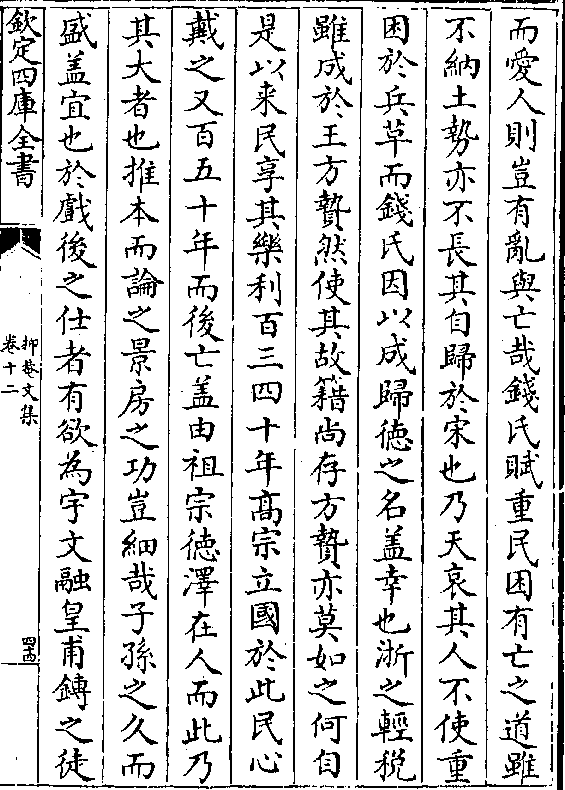 而愛人則豈有亂與亡哉錢氏賦重民困有亡之道雖
不納土勢亦不長其自歸於宋也乃天哀其人不使重
困於兵革而錢氏因以成歸徳之名盖幸也浙之輕稅
雖成於王方贄然使其故籍尚存方贄亦莫如之何自
是以来民享其樂利百三四十年髙宗立國於此民心
戴之又百五十年而後亡盖由祖宗徳澤在人而此乃
其大者也推本而論之景房之功豈細哉子孫之久而
盛盖宜也於戲後之仕者有欲為宇文融皇甫鏄之徒
欽定四庫全書
抑菴文集
卷十二
四十四